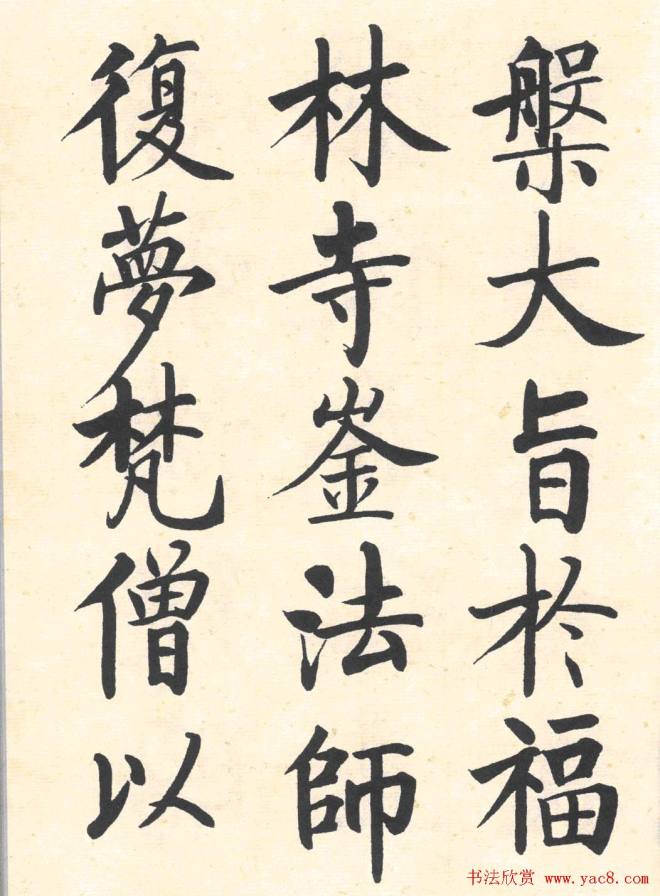 槃大旨於福
林寺崟法師
復夢梵僧以
书法欣赏 www.yac8.com